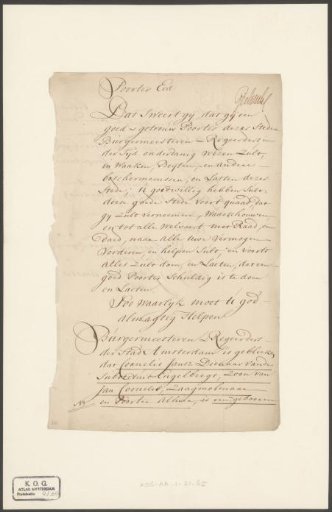 Poorter Eed
Dat Sweert gy dat gy een
goed en getrouw Poorter deser Steden
Burgermeesteren en Regeerders in
der Tijd onderdanig wesen Zult,
in Waaken, en andere
beschermenissen, en Lasten deser
Stede, U goedwillig hebben Sult,
dese goede Stede voort quaad, dat
gy Zult verneemen, Waarschouwen,
en tot alle Welvaart met Raad, en
Daad, naar alle Uwe Vermogen
Vorderen, en helpen Sult, en voorts
alles Zult doen, en Laaten, dat een
goed Poorter Schuldig is te doen
en Laaten
Zoo Waarlyk moet U god
almagtig Helpen
Burgermeesteren en Regeerders
der Stad Amsterdam is gebleken
dat Cornelis Jansz
Zoon van
Jan Cornelisz
en Poorter Alhier, is een geboren
K.O.G.
ATLAS AMSTERDAM